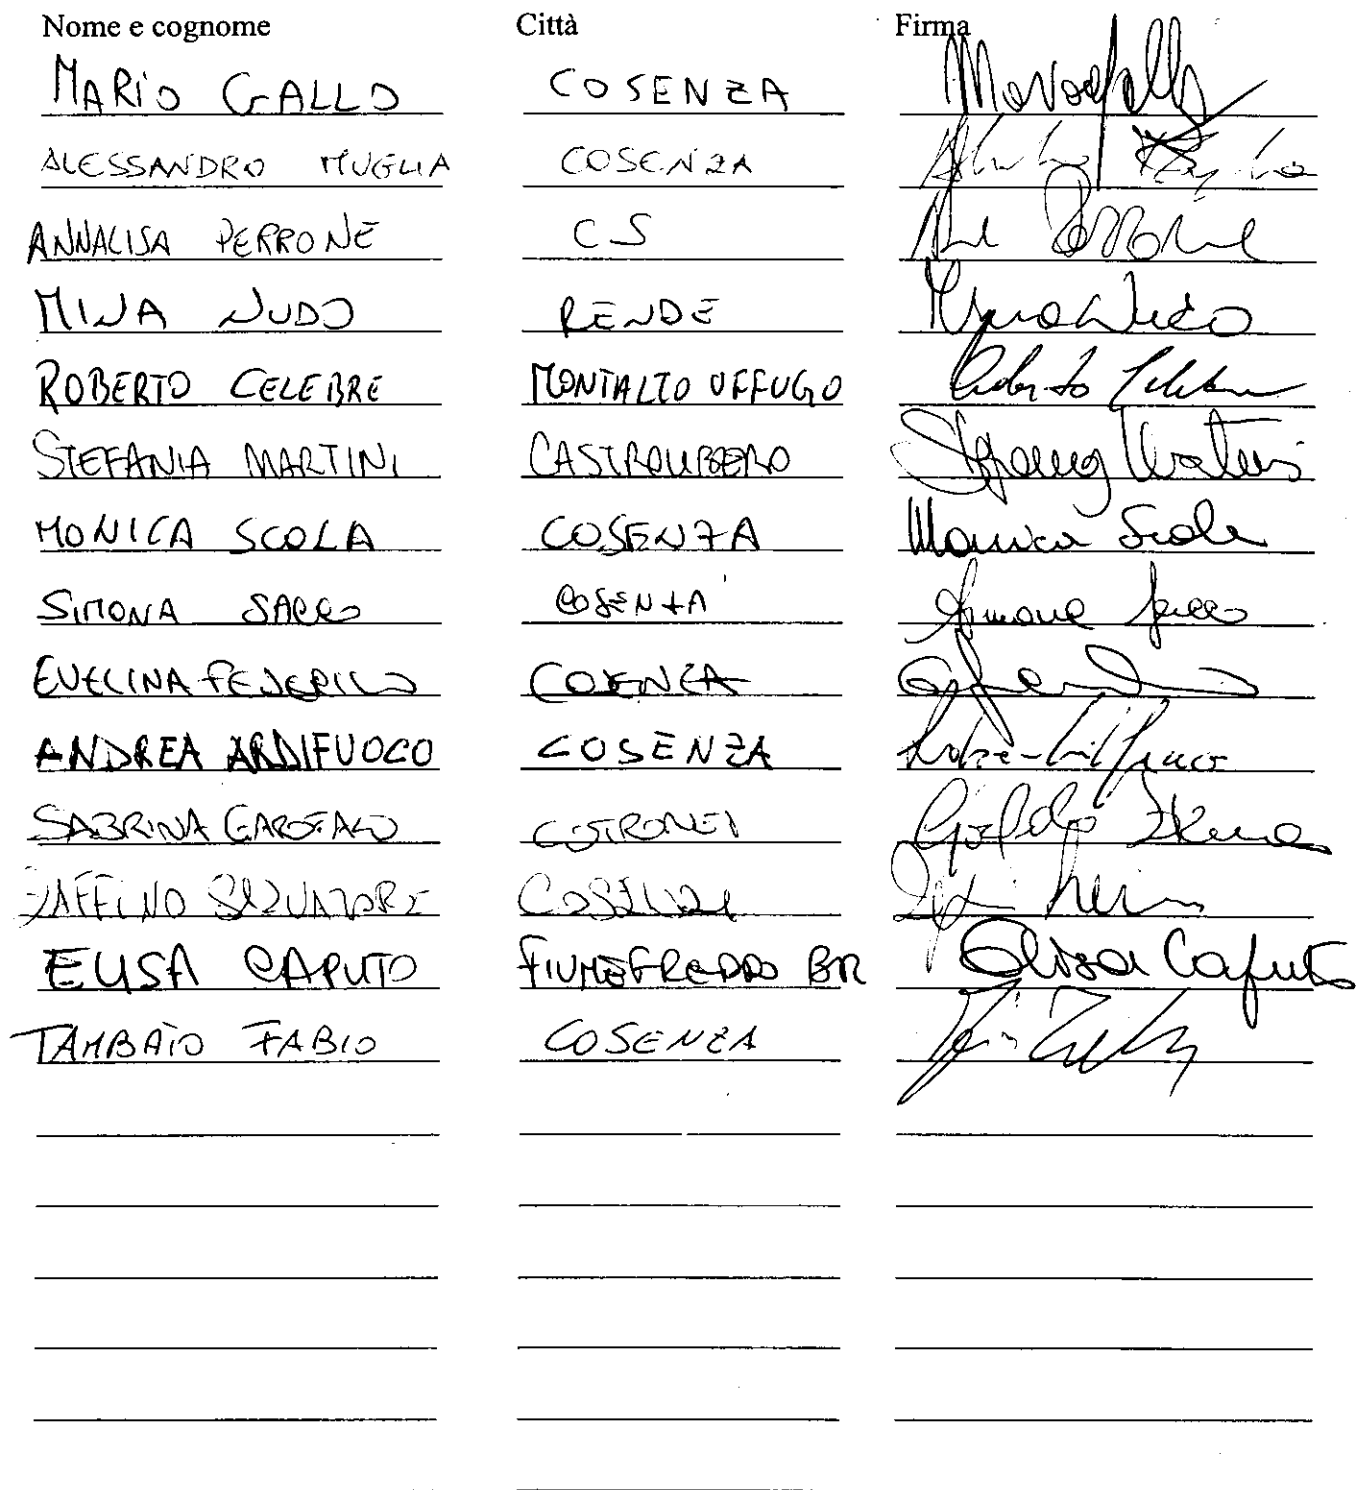 Nome e cognome Città Firma
MARIO GALLO COSENZA Mario Gallo
ALESSANDRO MUGLIA COSENZA
ANNALISA PERRONE CS Perrone
MINA NUDO RENDE Mina Nudo
ROBERTO CELEBRE MONTALTO UFFUGO Roberto
STEFANIA MARTINI CASTROLIBERO Stefania Martini
MONICA SCOLA COSENZA Monica Scola
SIMONA SACCO COSENZA Simona Sacco
EVELINA FEDERICO COSENZA
ANDREA ARDIFUOCO COSENZA
SABRINA GAROFALO COTRONEI
ZAFFINO SALVATORE COSENZA
ELISA CAPUTO FIUMEFREDDO BR Elisa Caputo
TAMBATO FABIO COSENZA